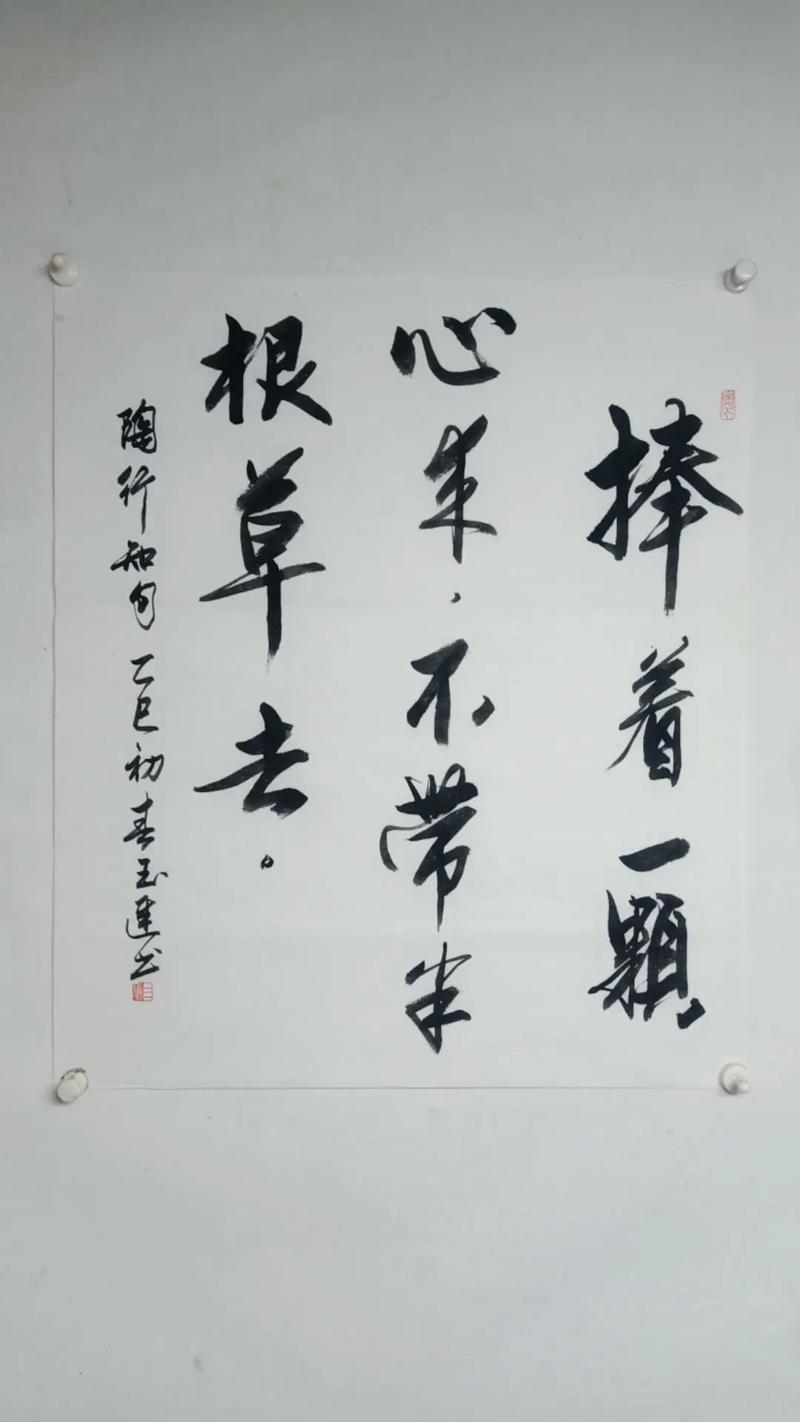 捧着一顆
心来，不带半
根草去。
陶行知句 乙巳初春玉连书